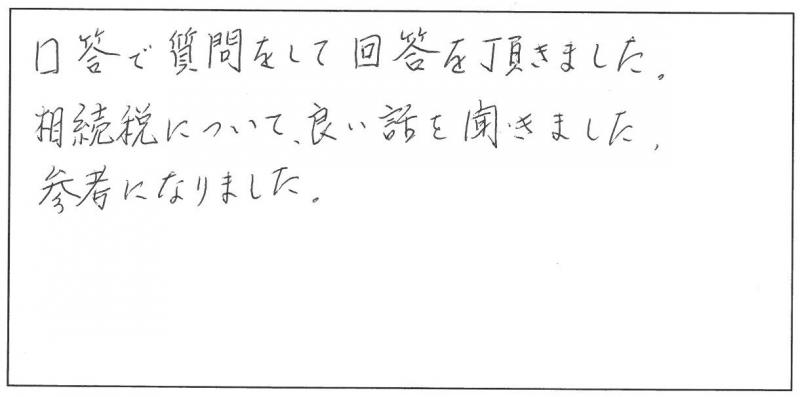 口答で質問をして回答を頂きました。
相続税について、良い話を聞きました、
参考になりました。